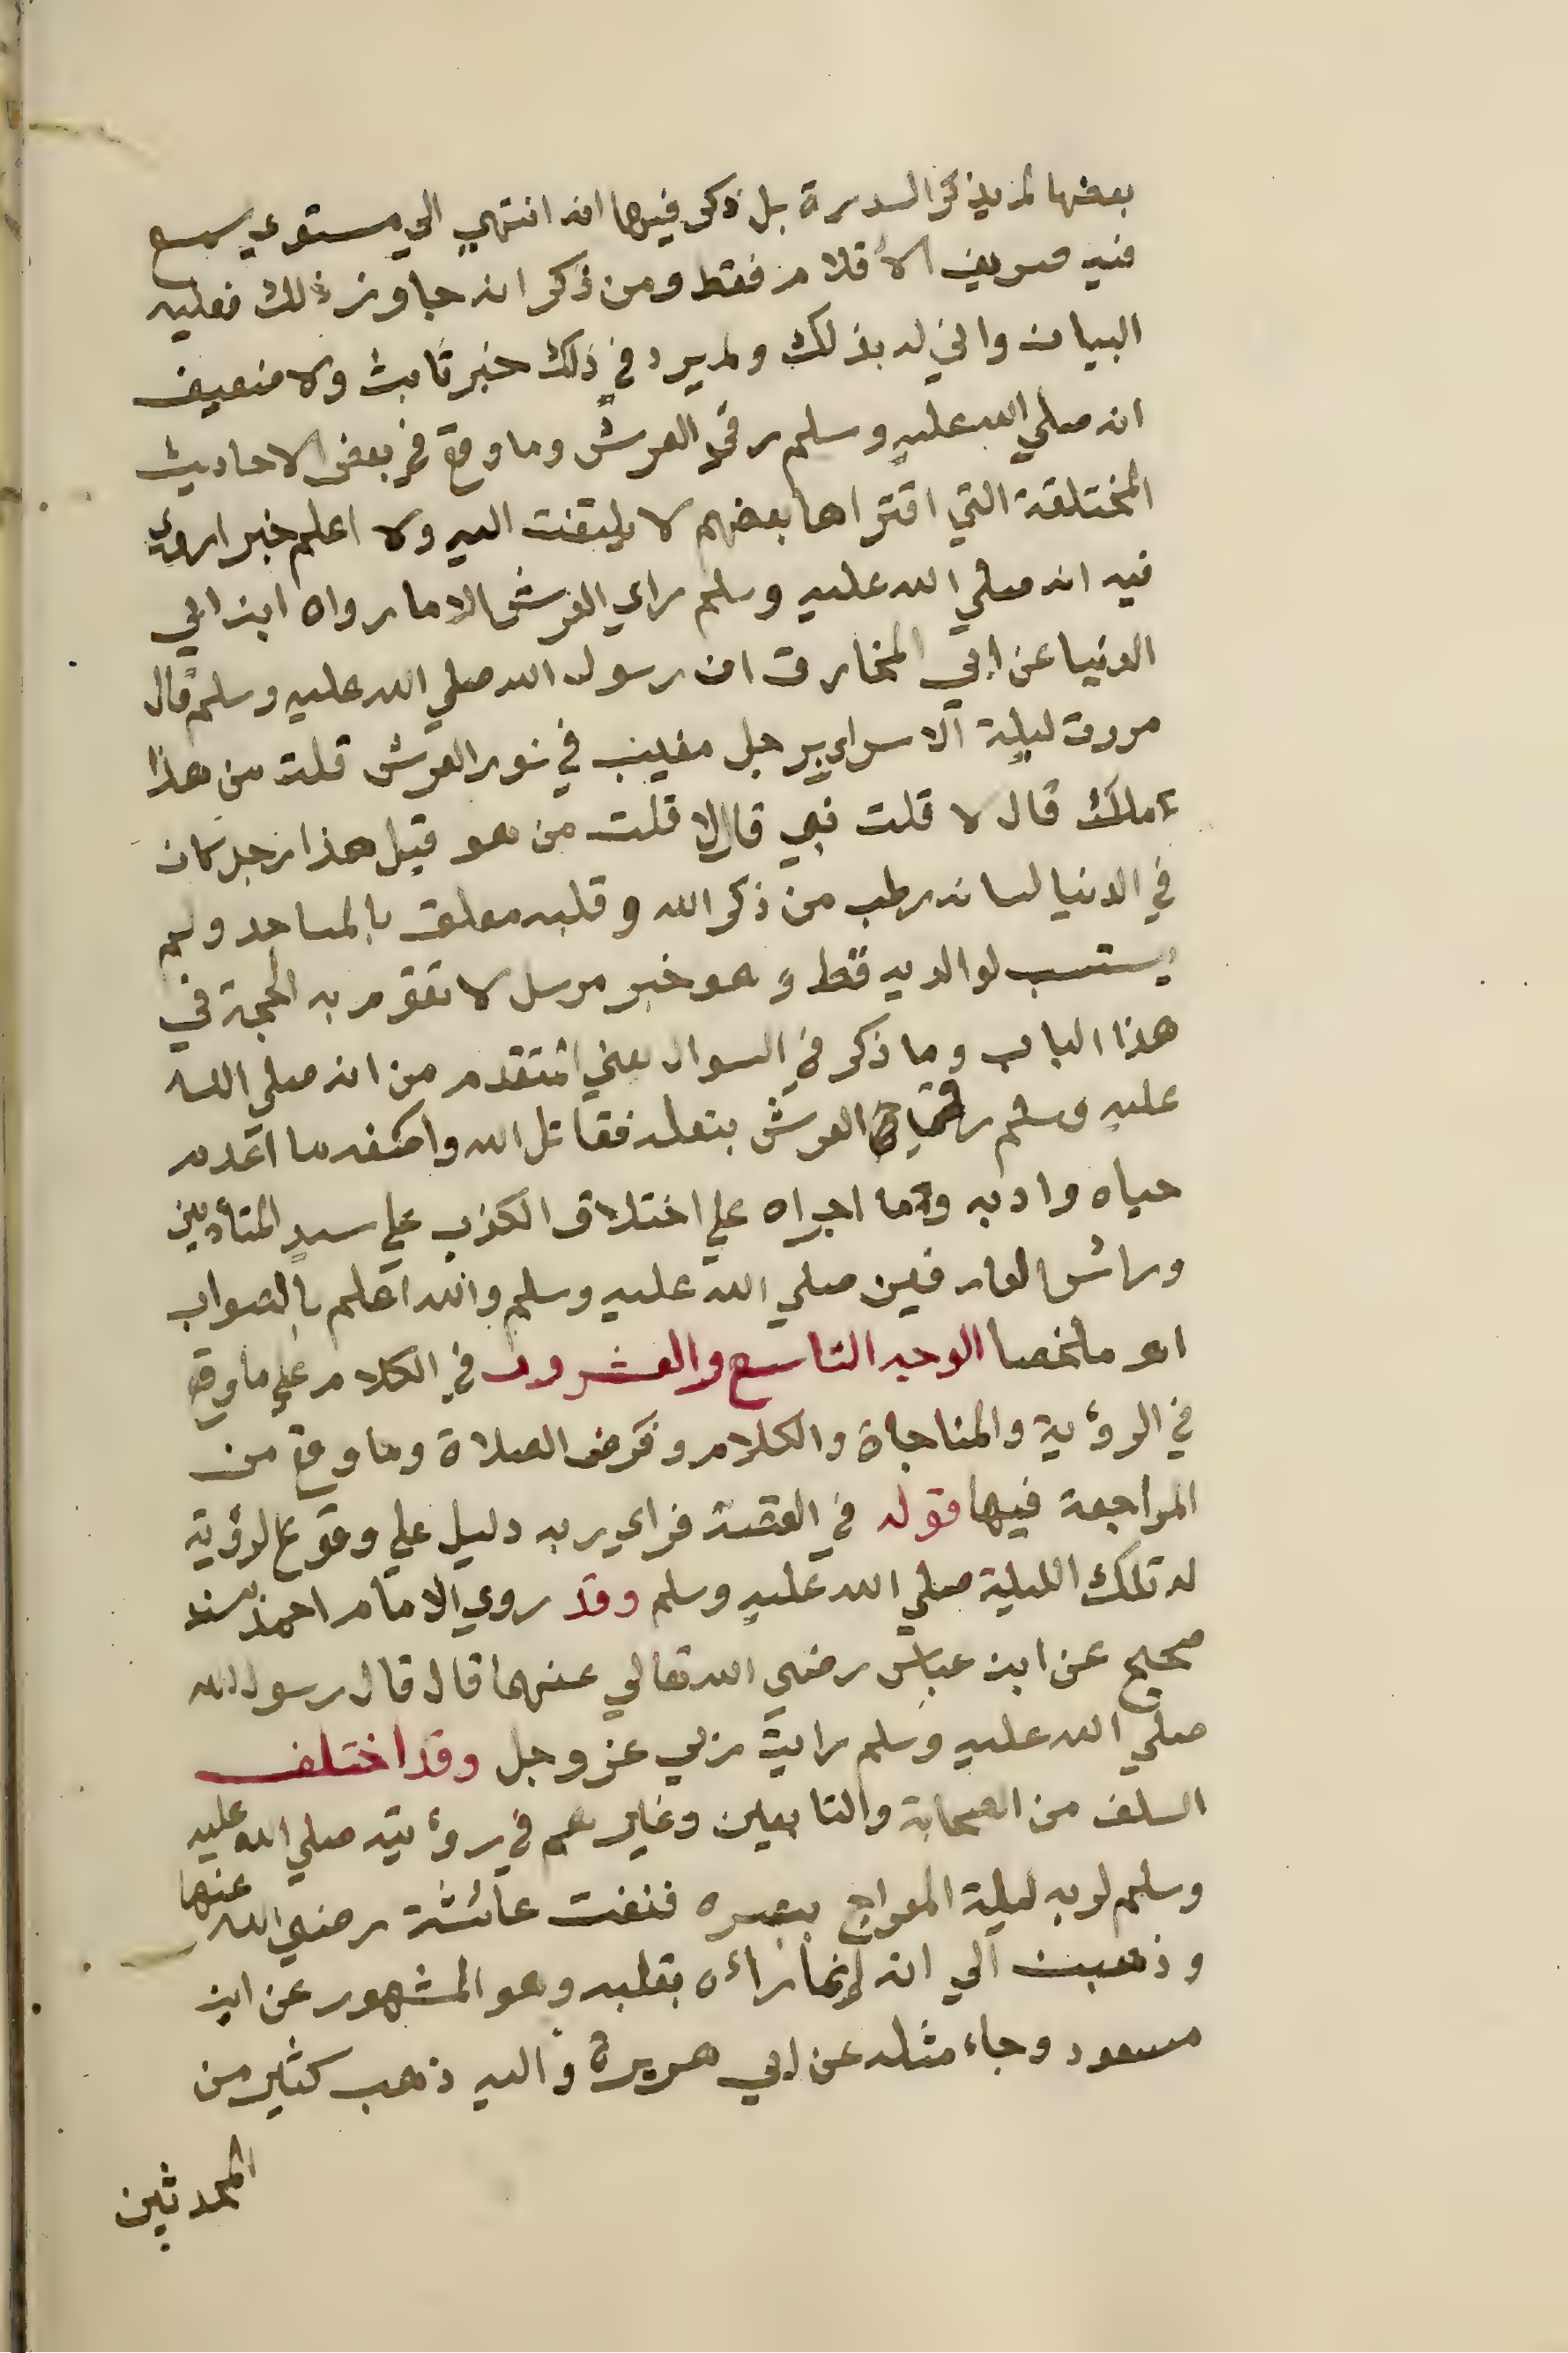 بعضها لم يذكر السدرة بل ذكر فيها انه انتهي الي مستوي سمع
فيه صريف الأقلام فقط ومن ذكر انه جاوز ذلك فعليه
البيان واني له بذلك ولم يرد في ذلك خبر ثابت ولا ضعيف
انه صلي الله عليه وسلم رقي العرش وما وقع في بعض الاحاديث
المختلقة التي افتراها بعضهم لا يلتفت اليه ولا اعلم خبرا روي
فيه انه صلي الله عليه وسلم راي العرش الا ما رواه ابن ابي
الدنيا عن ابي المخارق ان رسول الله صلي الله عليه وسلم قال
مررت ليلة الاسراي برجل مغيب في نور العرش قلت من هذا
ءملك قال لا قلت نبي قال لا قلت من هو قيل هذا رجل كان
في الدنيا لسانه رطب من ذكر الله وقلبه معلق بالمساجد ولم
يستسب لوالديه قط وهو خبر مرسل لا تقوم به الحجة في
هذا الباب وما ذكر في السوال يعني المتقدم من انه صلي الله
عليه وسلم رقي العرش بنعله فقاتل الله واضعه ما اعدم
حياه وادبه وما اجراه علي اختلاق الكذب علي سيد المتأدبين
وراس العارفين صلي الله عليه وسلم والله اعلم بالصواب
اهـ ملخصا الوجه التاسع والعشرون في الكلام علي ما وقع
في الرؤية والمناجاة والكلام وفرض الصلاة وما وقع من
المراجعة فيها قوله في القصة فراي ربه دليل علي وقوع الرؤية
له تلك الليلة صلي الله عليه وسلم وقد روي الامام احمد بسند
صحيح عن ابن عباس رضي الله تعالي عنهما قال قال رسول الله
صلي الله عليه وسلم رايت ربي عز وجل وقد اختلف
السلف من الصحابة والتابعين وغيرهم في رؤيته صلي الله عليه
وسلم لربه ليلة المعراج ببصره فنفت عائشة رضي الله عنها
وذهبت الي انه إنما رءاه بقلبه وهو المشهور عن ابن
مسعود وجاء مثله عن ابي هريرة واليه ذهب كثير من
المحدثين